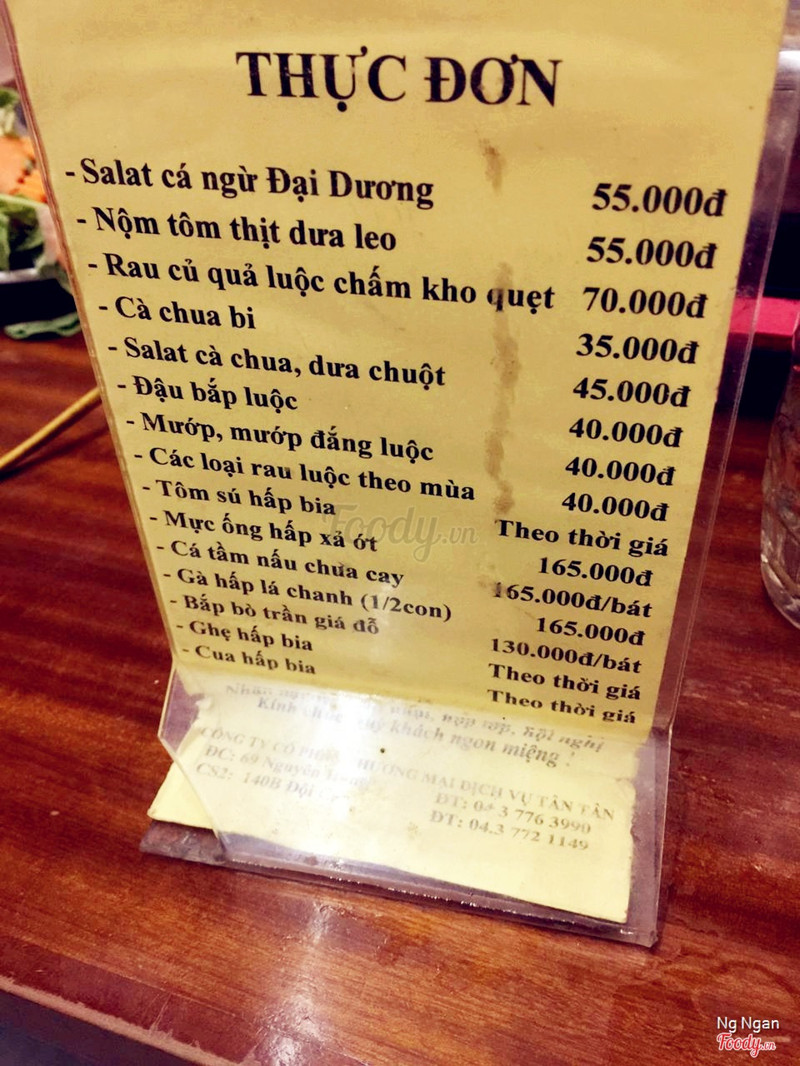 THỰC ĐƠN
- Salat cá ngừ Đại Dương 55.000đ
- Nộm tôm thịt dưa leo 55.000đ
- Rau củ quả luộc chấm kho quẹt 70.000đ
- Cà chua bi 35.000đ
- Salat cà chua, dưa chuột 45.000đ
- Đậu bắp luộc 40.000đ
- Mướp, mướp đắng luộc 40.000đ
- Các loại rau luộc theo mùa 40.000đ
- Tôm sú hấp bia Theo thời giá
- Mực ống hấp xả ớt 165.000đ
- Cá tầm nấu chưa cay 165.000đ/bát
- Gà hấp lá chanh (1/2con) 165.000đ
- Bắp bò trần giá đỗ 130.000đ/bát
- Ghẹ hấp bia Theo thời giá
- Cua hấp bia Theo thời giá
Nhận họp hội nghị
Kính quý khách ngon miệng !
CÔNG TY CỔ THƯƠNG MẠI DỊCH VỤ TÂN TÂN
ĐC: 69 Nguyễn ĐT: 04 3 776 3990
CS2: 140B Đội ĐT: 04.3 772 1149
Foody.vn
Ng Ngan
Foody.vn